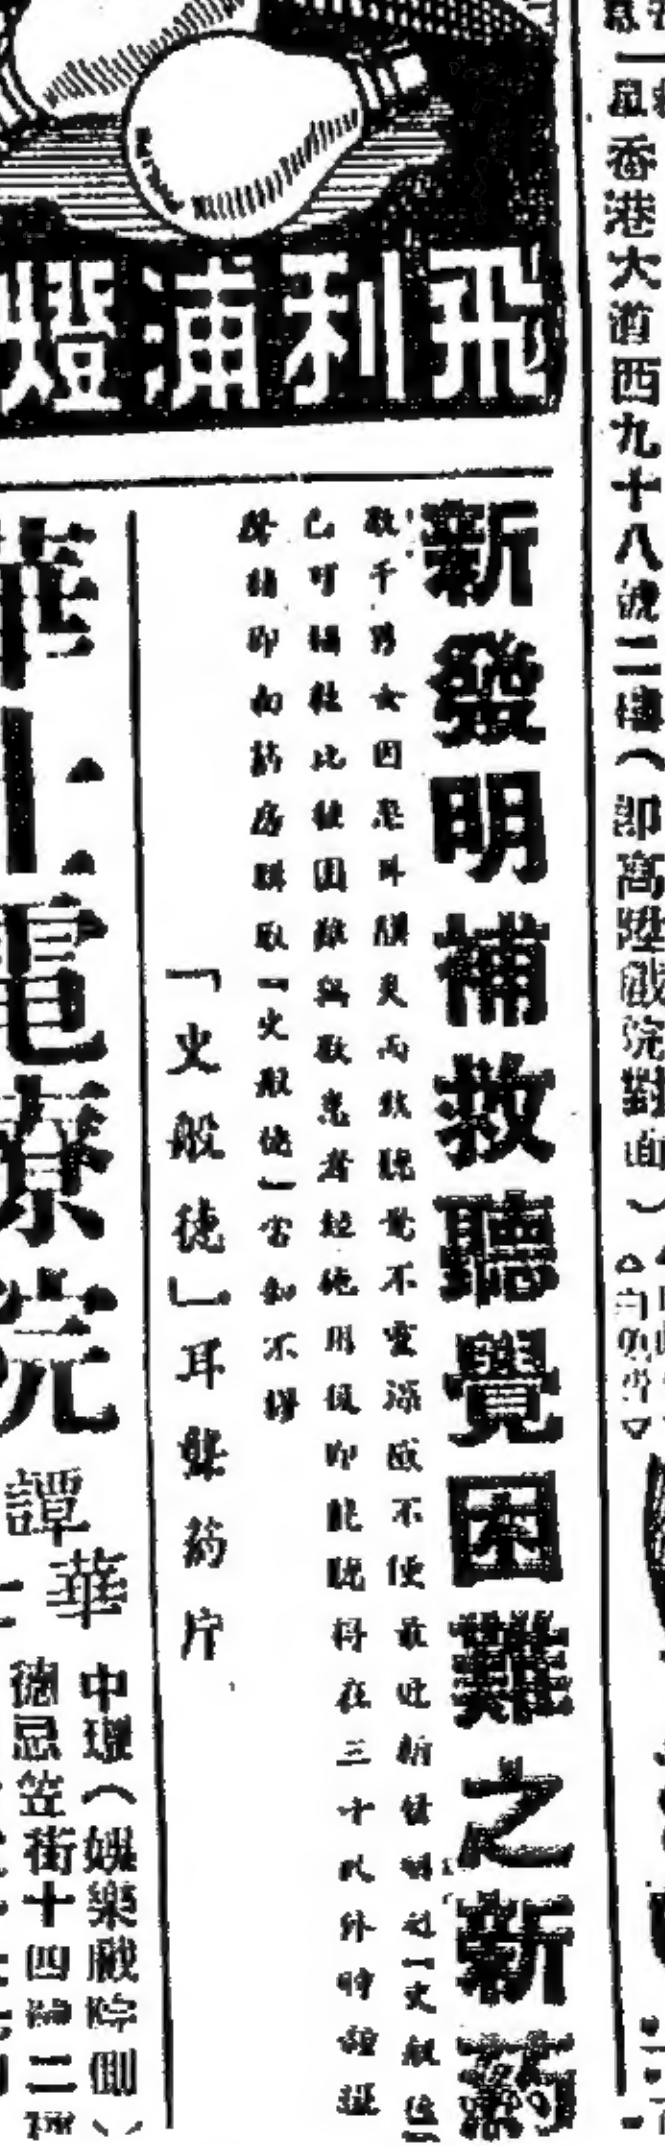 香港大道西九十八號二樓（即高陞戲院對面）
飛利浦燈
新發明補救聽覺困難之新药
數千男女因患耳膜炎而致聽覺不靈深感不便最近新發明之「史般德」
已可補救此種困難無數患者經施用後即能聽得在三十呎外時鐘
聲請即向药房購取「史般德」當知不謬
「史般德」耳聾药片
華士電療院
譚華
中環（娛樂戲院側）
德忌笠街十四號二樓